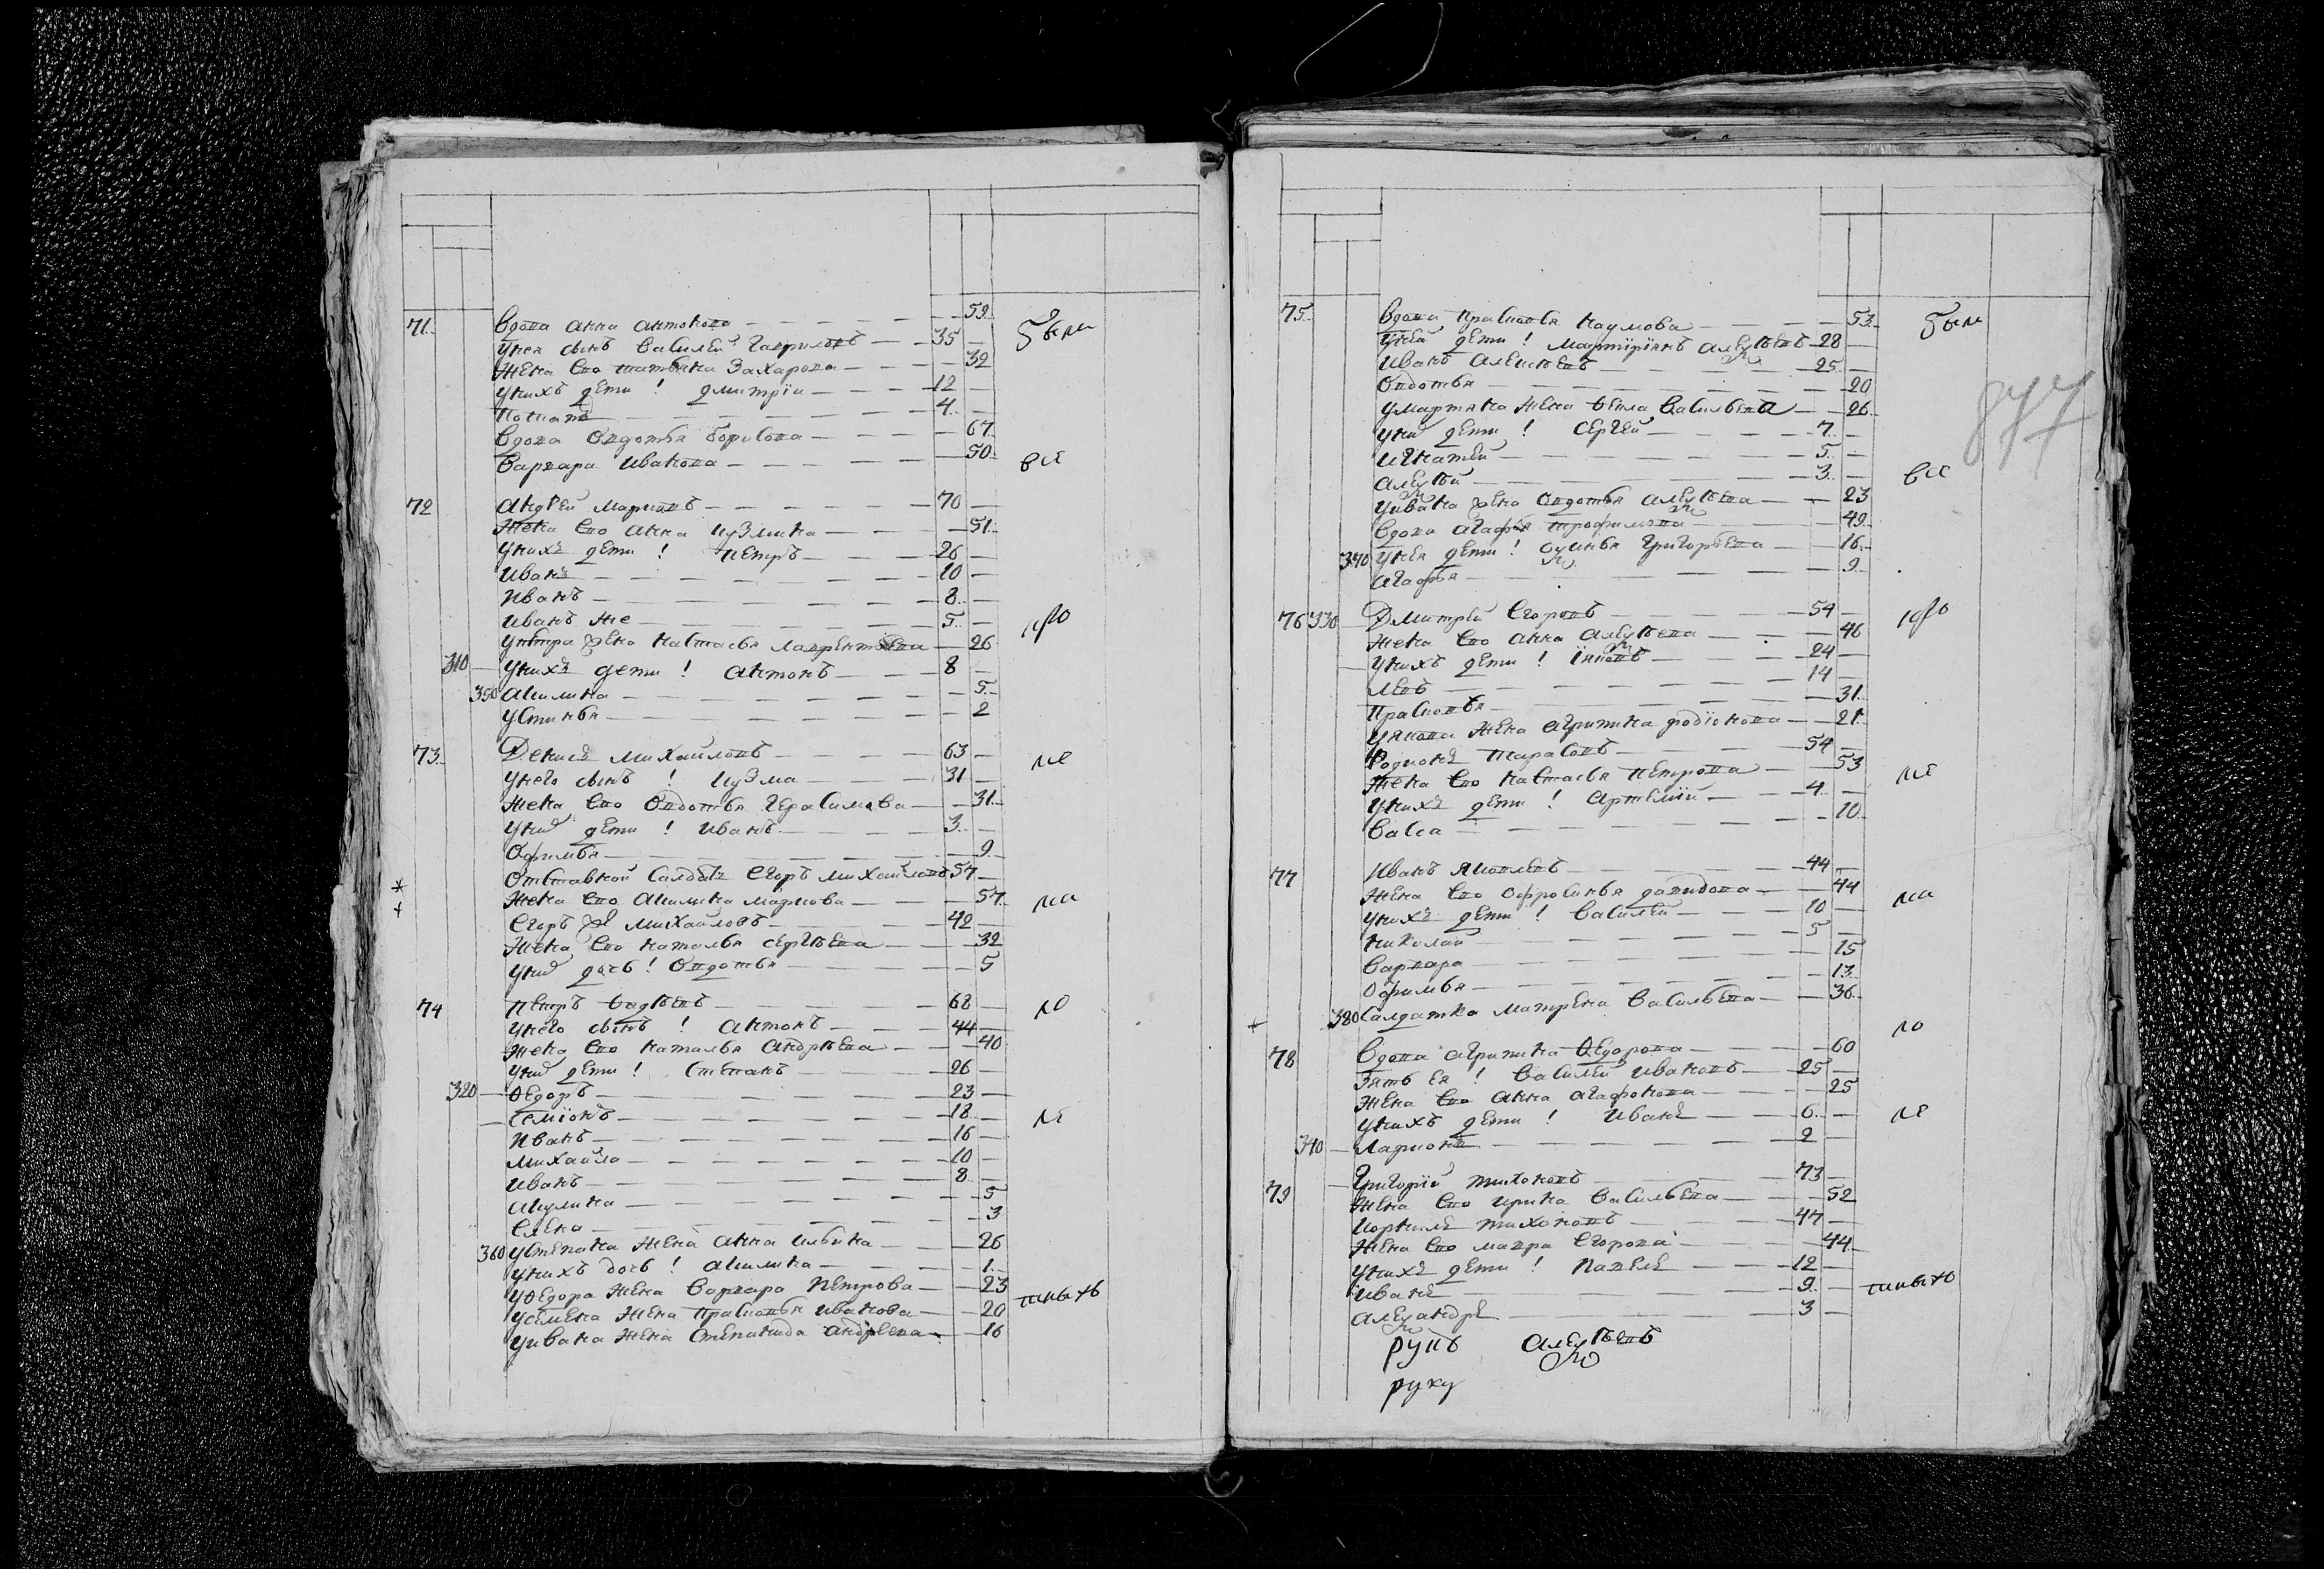 71. Вдова анна антонова — 59.
Унея сынъ василей гавриловъ — 35
Жена ево татьяна Захарова — 32
Унихъ дети ! дмитрїи — 12
Потапъ — 4.
Вдова Овдотья борисова — 67
Варвара Ивановa — 50.
72 андрей марковъ — 70
Жена ево анна кузмина — 51.
Унихъ дети ! петръ — 26
Иванъ — 10
Иванъ — 8.
Иванъ же — 5
Упетра жена настасья лаврентьева — 26
310 Унихъ дети ! антонъ — 8
350 акилина — 5.
Устинья — 2
73 Денисъ михайловъ — 63
Унего сынъ ! кузма — 31
Жена ево Овдотья герасимова — 31.
Унихъ дети ! иванъ — 3.
Офимья — 9
* Отставной салдатъ егоръ михайловъ 57
+ Жена ево акилина маркова — 57
егоръ же михайловъ — 42
Жена ево наталья сергѣева — 32
Унихъ дочь ! Овдотья — 5
74 петръ Fадѣевъ — 68
Унего сынъ ! антонъ — 44
Жена ево наталья андрѣева — 40
Унихъ дети ! степанъ — 26
320 Ѳедоръ — 23
семїонъ — 18
Иванъ — 16
михайла — 10
Иванъ — 8
акулина — 5
елена — 3
360 Устепана жена анна ильина — 26
Унихъ дочь ! акилина — 1.
УѲедора жена варвара петрова — 23
Усемена жена прасковья иванова — 20
Уивана жена степанида андреева — 16
были
все
про
не
на
но
не
75. Вдова прасковья наумова — 53.
Уней дети ! мартїрїянъ алеѯѣевъ 28
Иванъ алеѯѣевъ — 25
Овдотья — 20
Умартяна жена Ѳекла васильева — 26.
Унихъ дети ! сергей — 7.
Игнатей — 5.
алеѯѣй — 3.
Уивана жена Овдотья алеѯѣева — 23
Вдова агафья трофимова — 49.
370 Унея дети ! оѯинья григорьева — 16.
агафья — 9
76 330 Дмитрей егоровъ — 54
Жена ево анна алеѯѣева — 46
Унихъ дети ! їяковъ — 24
левъ — 14
прасковья — 31.
Уякова жена агрипина родїонова — 21.
Родионъ тарасовъ — 54
Жена ево настасья петрова — 53
Унихъ дети ! артемїй — 4
васса — 10.
77 Иванъ яковлевъ — 44
Жена ево офросинья давидова — 44
Унихъ дети ! василей — 10
николай — 5
варвара — 15
Офимья — 13.
+ 380 салдатка матрена васильева — 36.
78 Вдова агрипина Ѳедорова — 60
Зять ея ! василей ивановъ — 25
Жена ево анна агафонова — 25
Унихъ дети ! иванъ — 6.
340 ларионъ — 2
79 Григорїй тихоновъ — 73
Жена ево ирина васильева — 52
корнилъ тихоновъ — 47
Жена ево мавра егорова — 44
Унихъ дети ! павелъ — 12
Иванъ — 9.
алеѯандръ — 3
алеѯѣевъ
руку
были
все
про
не
на
но
не